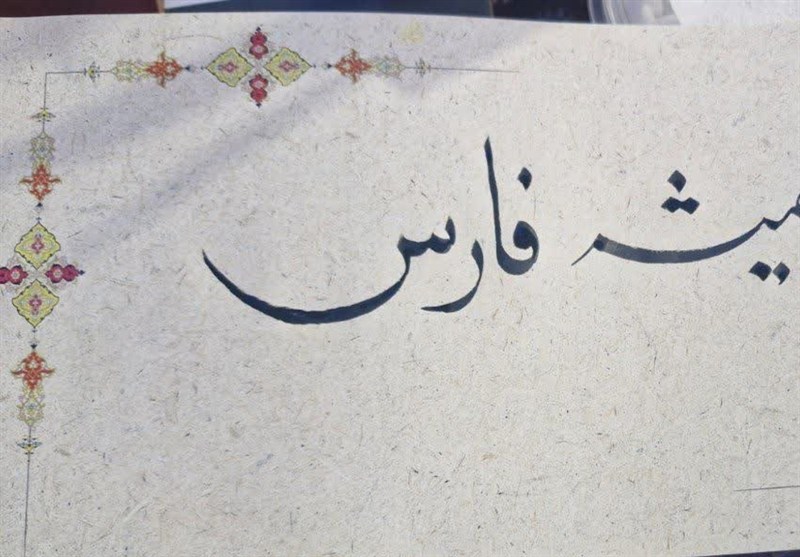 میشه فارس